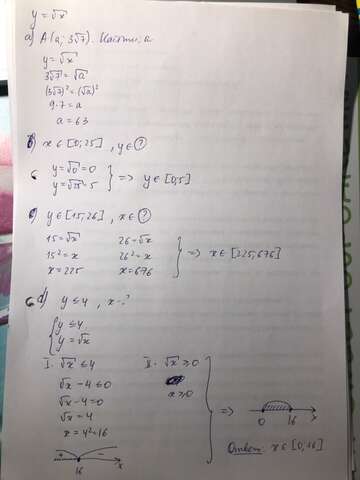 y = √x
a) A(a; 3√7). Найти: a
y = √x
3√7 = √a
(3√7)² = (√a)²
9·7 = a
a = 63
b) x ∈ [0; 25], y ∈ ?
y = √0 = 0
y = √25 = 5 } => y ∈ [0; 5]
c) y ∈ [15; 26], x ∈ ?
15 = √x 26 = √x
15² = x 26² = x } => x ∈ [225; 676]
x = 225 x = 676
d) y ≤ 4, x - ?
{ y ≤ 4
y = √x
I. √x ≤ 4 II. √x ≥ 0
√x - 4 ≤ 0
√x - 4 = 0 x ≥ 0
√x = 4 } =>
x = 4² = 16
0 16 x
+ - 
16 x
Ответ: x ∈ [0; 16]